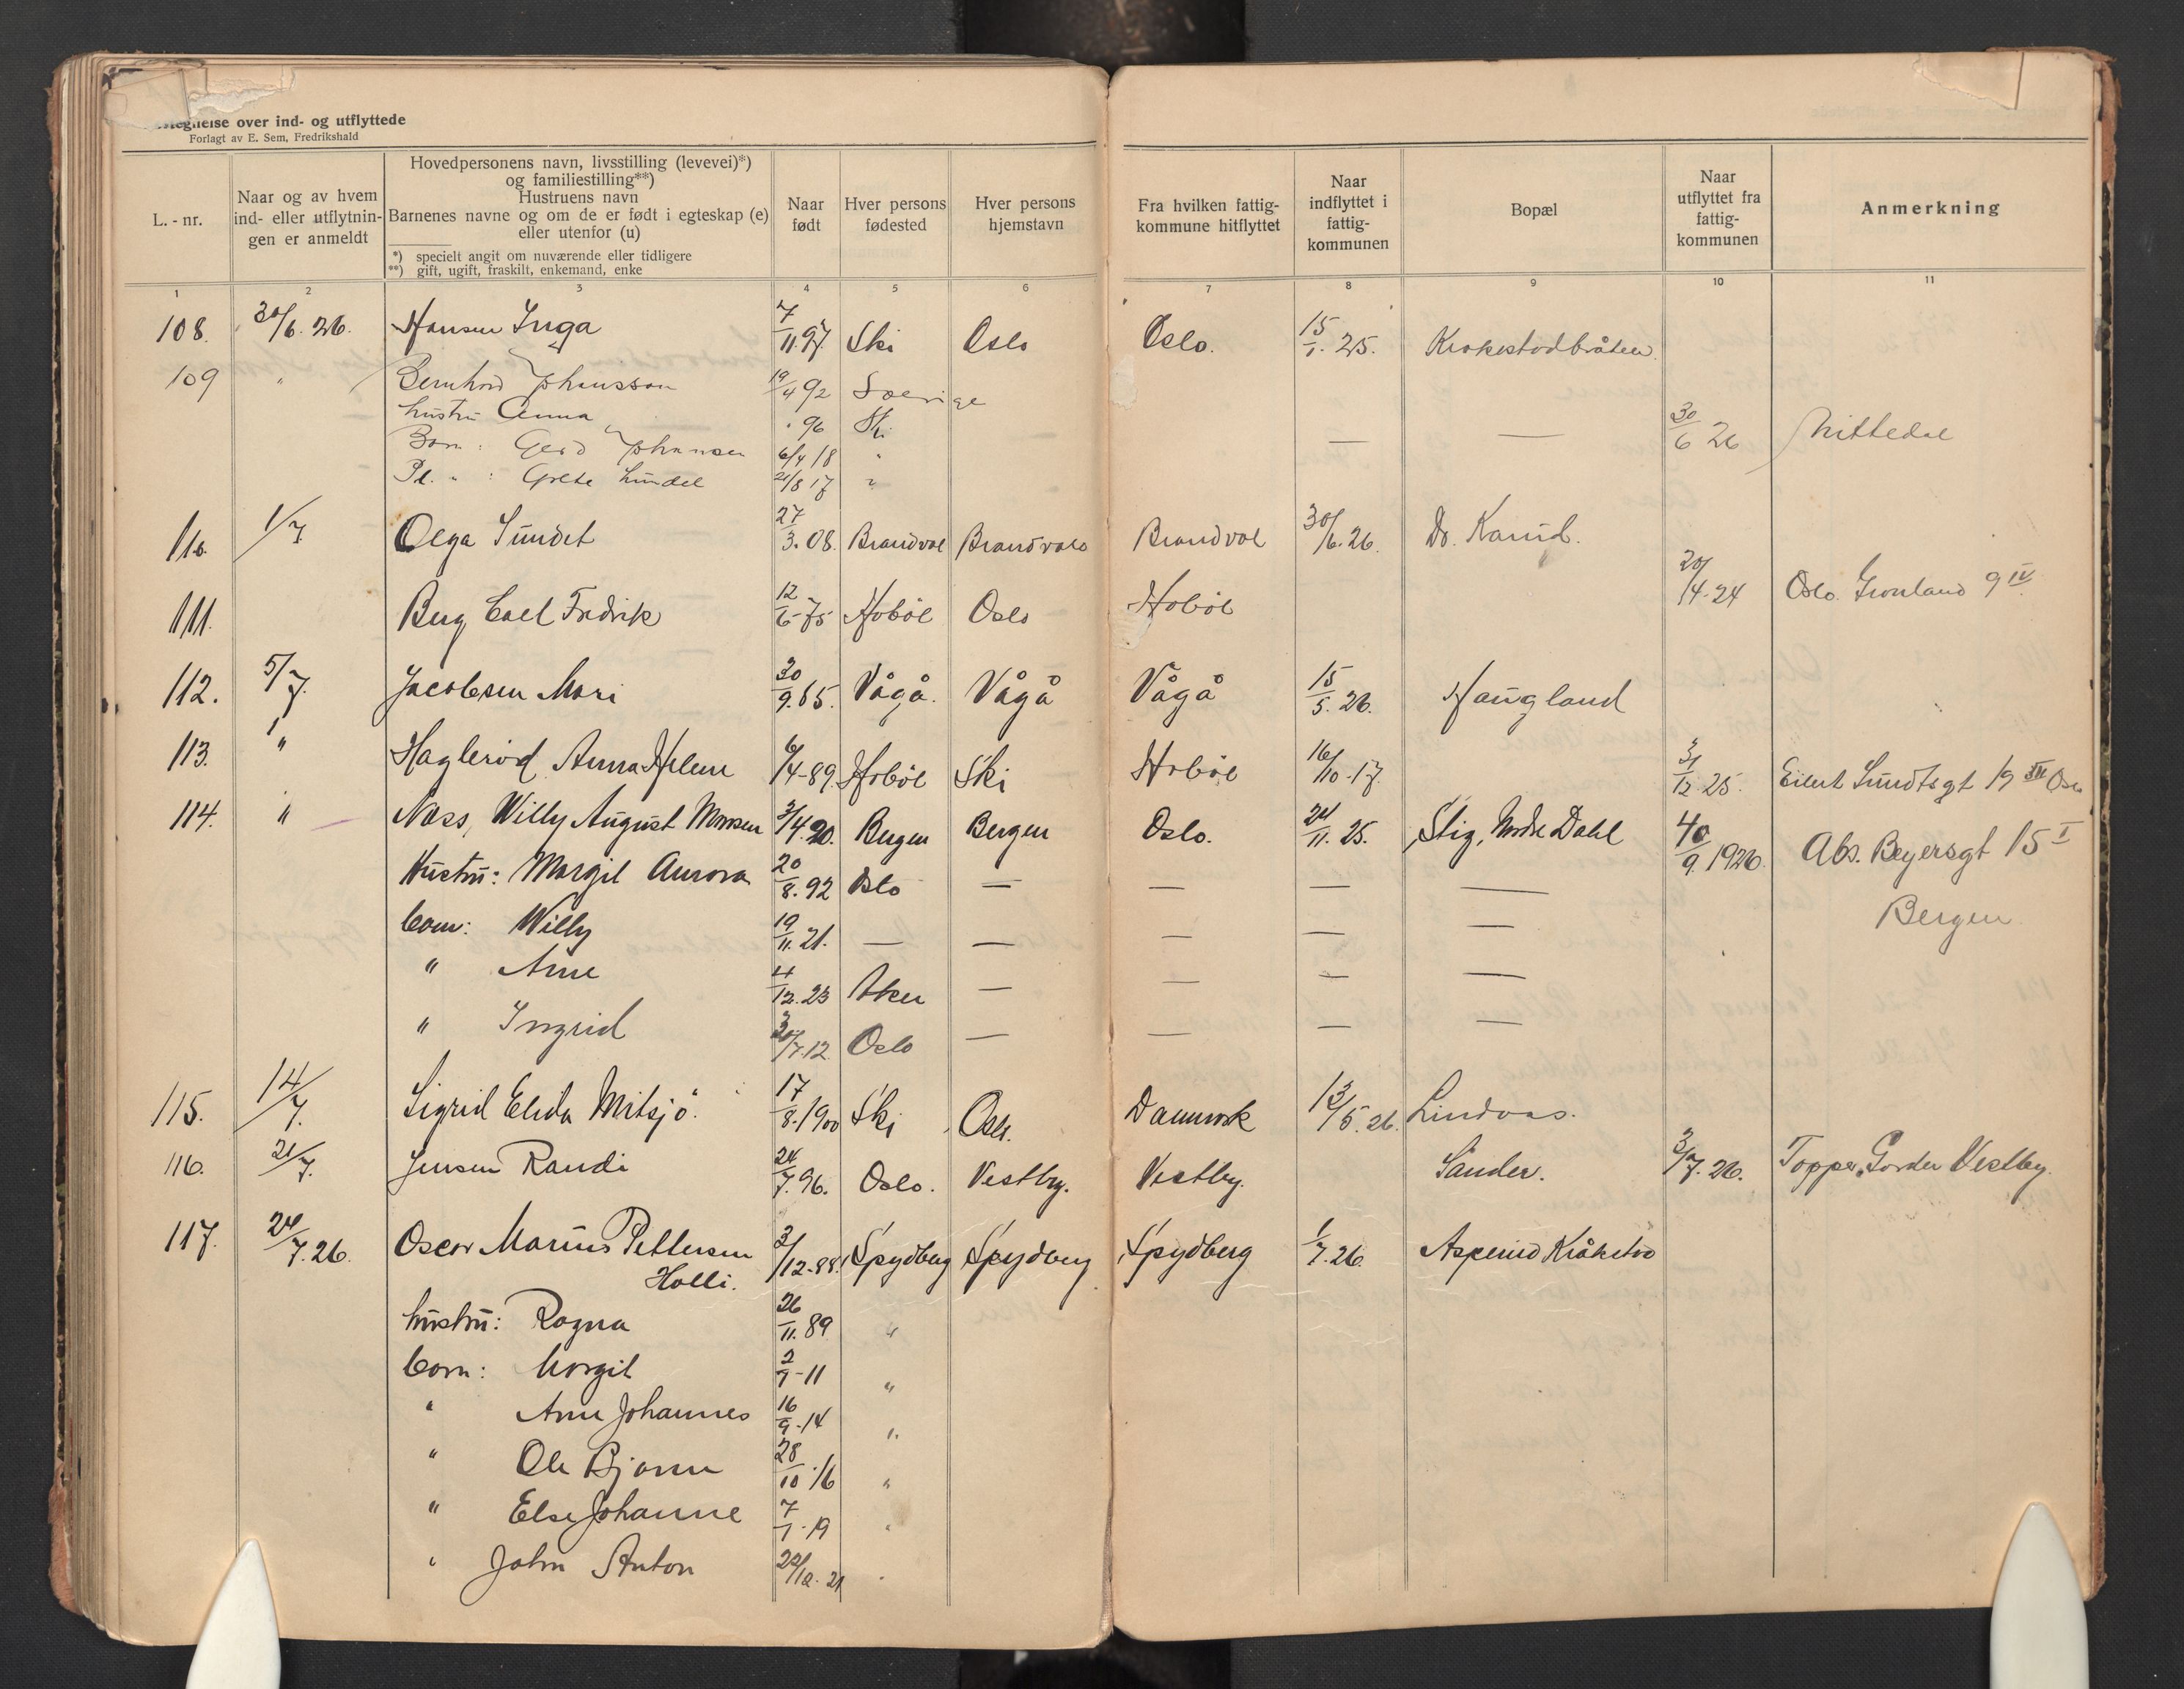 ...tegnelse over ind- og utflyttede
Forlagt av E. Sem, Fredrikshald
L.-nr.
Naar og av hvem ind- eller utflytnin-gen er anmeldt
Hovedpersonens navn, livsstilling (levevei)*)
og familiestilling**)
Hustruens navn
Barnenes navne og om de er født i egteskap (e)
eller utenfor (u)
*) specielt angit om nuværende eller tidligere
**) gift, ugift, fraskilt, enkemand, enke
Naar født
Hver persons fødested
Hver persons hjemstavn
Fra hvilken fattig-kommune hitflyttet
Naar indflyttet i fattig-kommunen
Bopæl
Naar utflyttet fra fattig-kommunen
Anmerkning
1 2 3 4 5 6 7 8 9 10 11
108. 30/6.26. Hansen Inga 7/11.97 Ski Oslo Oslo. 15/1.25. Krokestadbråten.
109 " Bernhard Johansson 19/4 92 Sverige
hustru Anna 96 Ski — — 30/6 26 Nittedal
Barn: Gerd Johansen 6/4 18 "
Pl. " : Grete Lundel 21/8 17 "
110. 1/7 Olga Sundet 27/3.08. Brandval Brandvold Brandvol 30/6.26. Do.
111. Berg Carl Fredrik 12/6-75 Hobøl Oslo Hobøl 20/4-24 Oslo. Grønland 9 IV
112. 5/7. Jacobsen Mari 30/9.65. Vågå. Vågå Vågå 15/5.26. Haugland
113. " Haglerød Anna Helene 6/4-89 Hobøl Ski Hobøl 16/10-17. 31/12.25. Eilert Sundtsgt 19 III Oslo
114. " Næss, Willy August Monsen 3/4.90. Bergen Bergen Oslo. 24/11.25. Stig, Nordre Dahl 9.1926. Abs. Beyersgt 15 I
Hustru: Margit Aurora 20/8.92 Oslo — — — —
Bergen
barn: Willy 19/11.21. — — — — —
" Arne 4/12.23 Aker — — — —
" Ingrid 7.12. Oslo — — — —
115. 14/7. Sigrid Elida Mitsjö. 17/8.1900 Ski Oslo. Danmark 13/5.26. Lindvas.
116. 21/7. Jensen Randi 24/7.96. Oslo. Vestby. Vestby. Sander. 3/7.26. Topper, Garder Vestby.
117. 24/7.26. Oscar Marius Pettersen 3/12-88. Spydberg Spydberg Spydberg 1/7.26. Aspenud Kråkstad
Holli.
hustru: Ragna 26/11.89 "
barn: Margit 2/7-11 "
" Arne Johannes 16/9-14 "
" Ole Bjarne 28/10.16 "
" Else Johanne 7/1-19 "
" John Anton 22/12.21 "